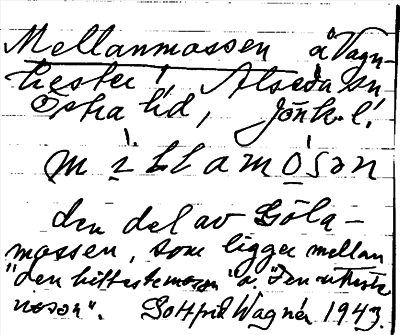 Mellanmossen å Vagn-
hester, Alseda sn
Östra hd, Jönk. l.
mìllamòsən
den del av Göla-
mossen, som ligger mellan
"den hittestemosən" o. "den
mosən". Gottfrid Wagnér 1943.